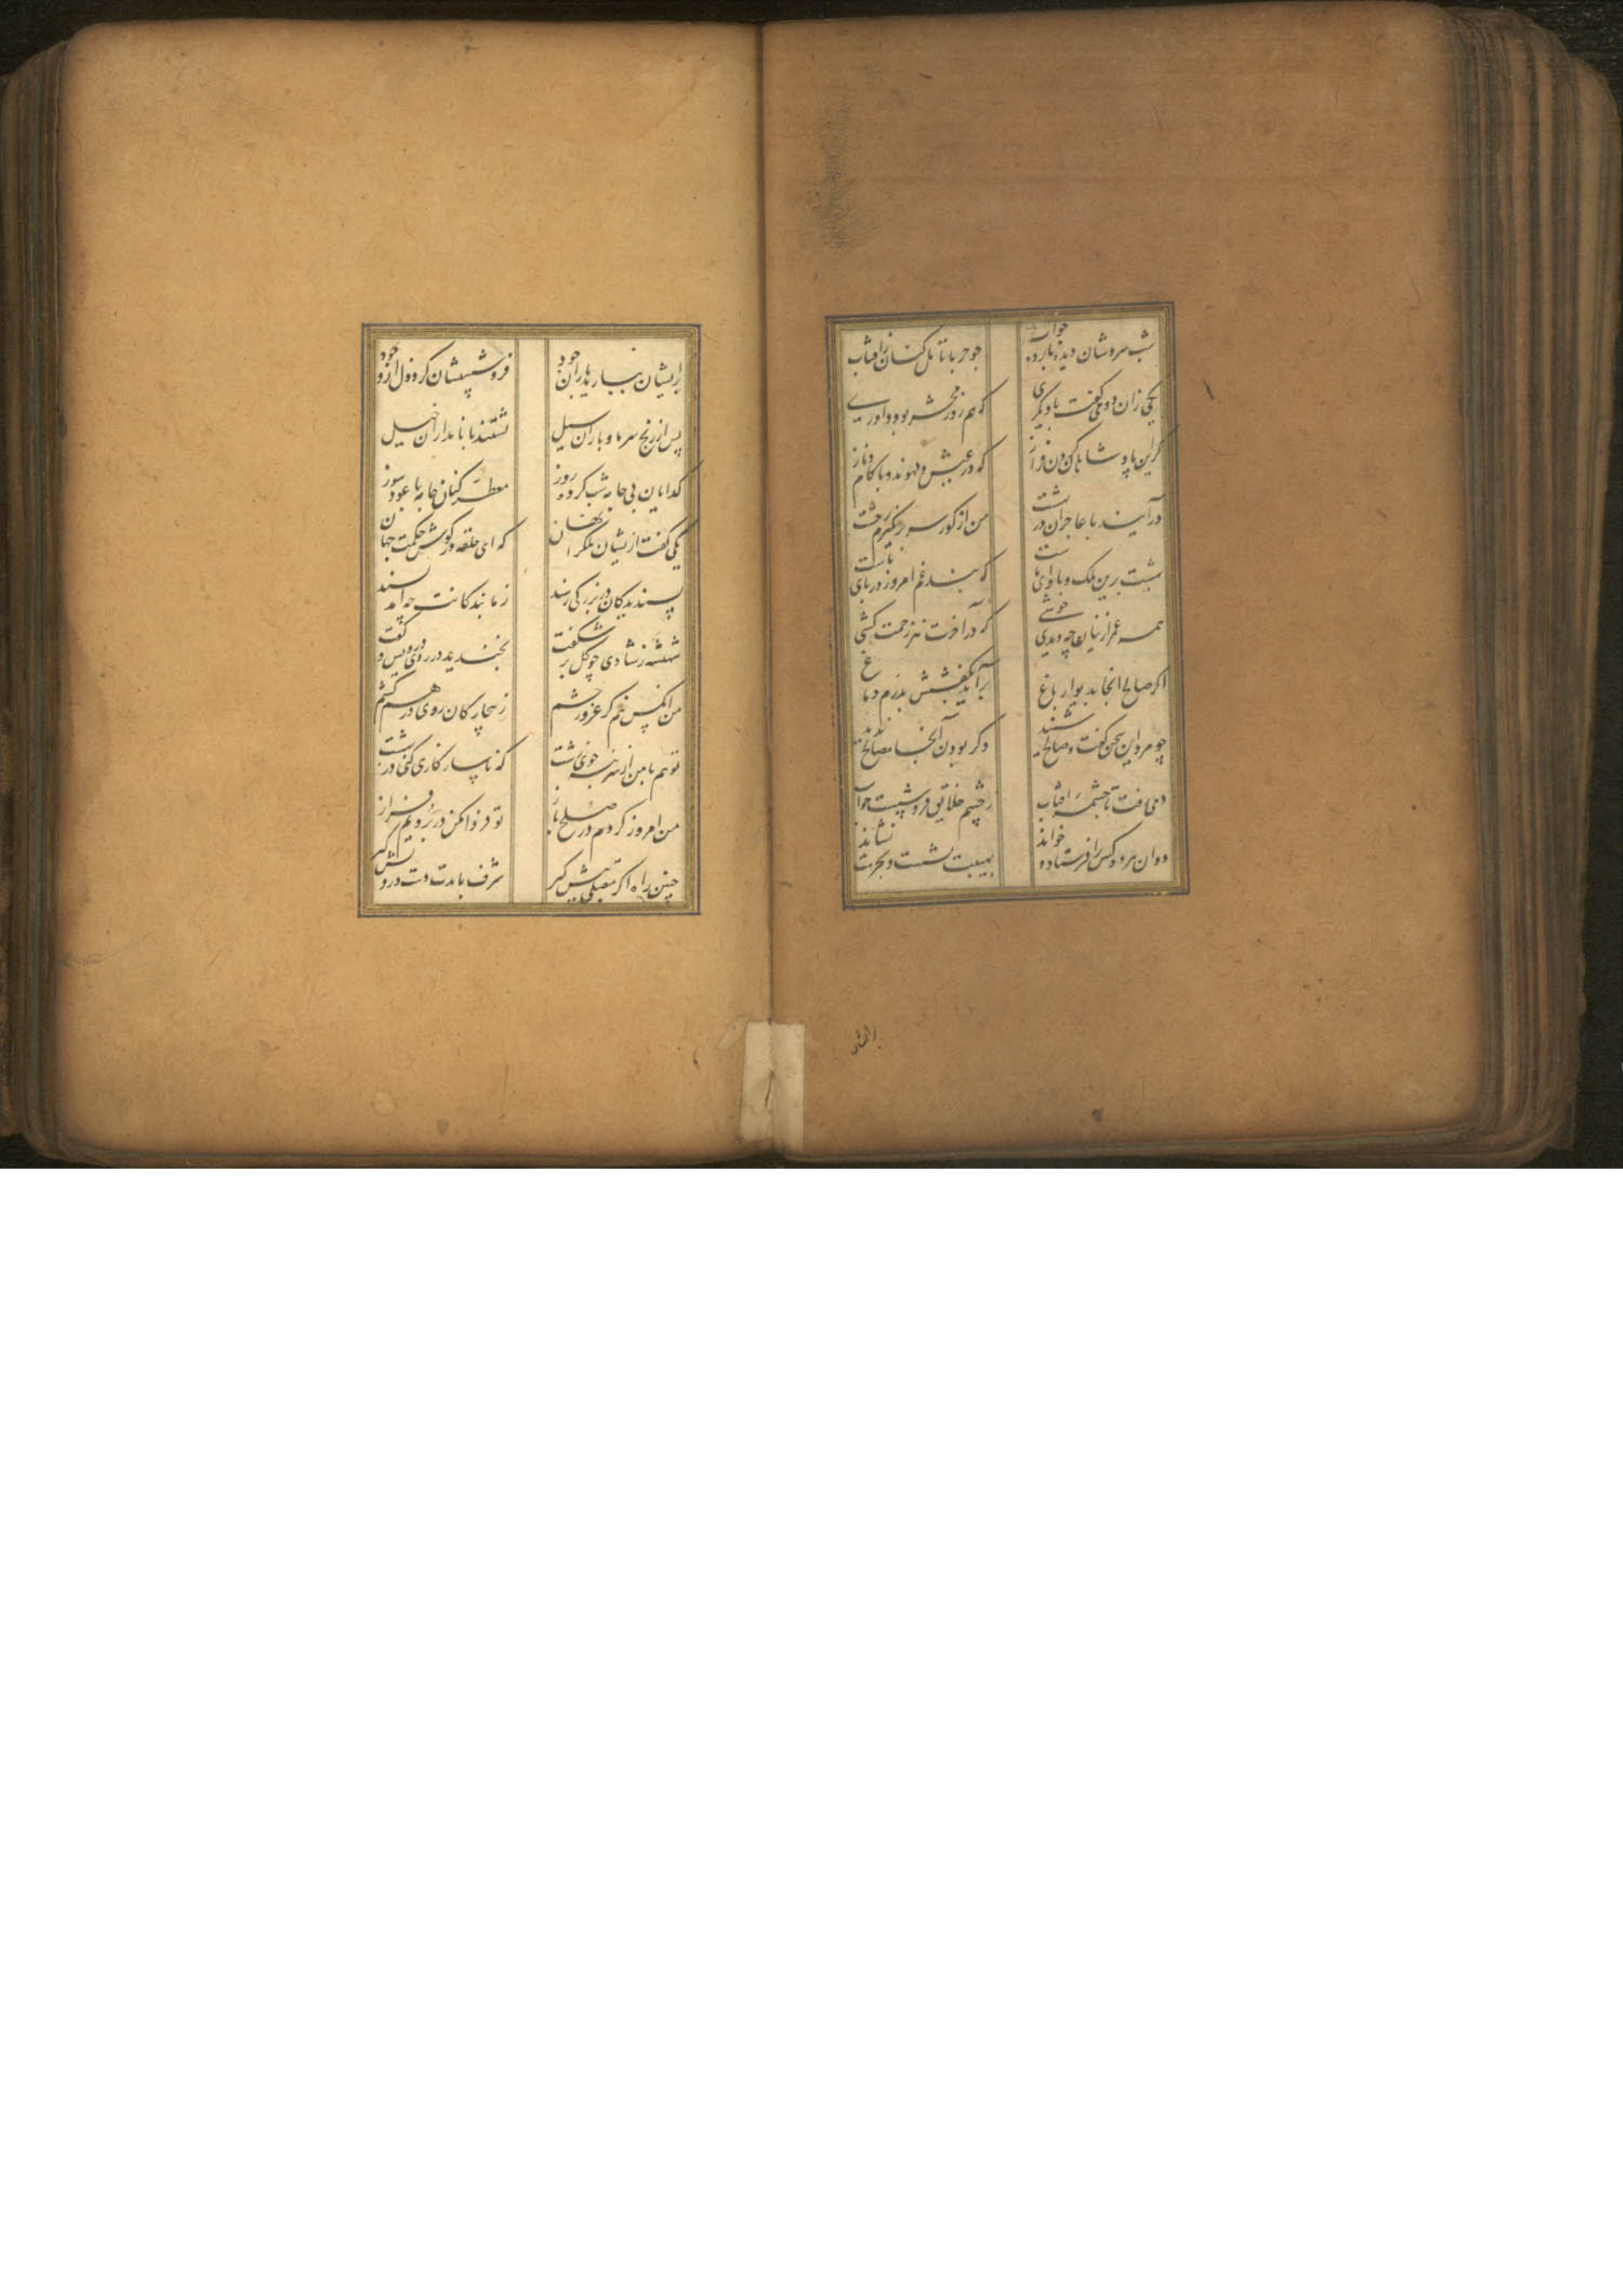 شب سردشان دیده نابرده خواب
چو حربا تامل کنان زافتاب
یکی زان دو می گفت با دیگری
که هم روز محشر بود داوری
گر این پادشاهان گردن فراز
که در عیش و لهوند و با کام و ناز
درآیند با عاجزان در بهشت
من از گور سر برنگیرم ز خشت
بهشت برین ملک و ماوای ماست
که بند غم امروز در پای ماست
همه عمر ازینها چه دیدی خوشی
که در آخرت نیز زحمت کشی
اگر صالح انجا بدیوار باغ
برآید بکفشش بدرم دماغ
چو مرد این سخن گفت و صالح شنید
دگر بودن آنجا مصالح ندید
دمی رفت تا چشمه افتاب
ز چشم خلایق فروشست خواب
دوان هر دو کس را فرستاد و خواند
بهیبت نشست و بحرمت نشاند
برایشان
برایشان ببارید باران جود
فروشستشان کرد ذل از وجود
پس از رنج سرما و باران سیل
نشستند با نامداران خیل
کدایان بی جامه شب کرده روز
معطر کنان جامه با عود سوز
یکی گفت ازیشان ملک را نهان
که ای حلقه در کوش حکمت جهان
پسندیدکان در بزرکی رسند
ز ما بندکانت چه آمد پسند
شهنشه ز شادی چو کل بر شکفت
بخندید در روی درویش و گفت
من انکس نیم کز غرور حشم
ز بیچارکان روی درهم کشم
تو هم با من از سر بنه خوی زشت
که ناسازکاری کنی در بهشت
من امروز کردم در صلح باز
تو فردا مکن در برویم فراز
چنین راه اکر مقبلی پیش کیر
شرف بایدت دست درویش کیر